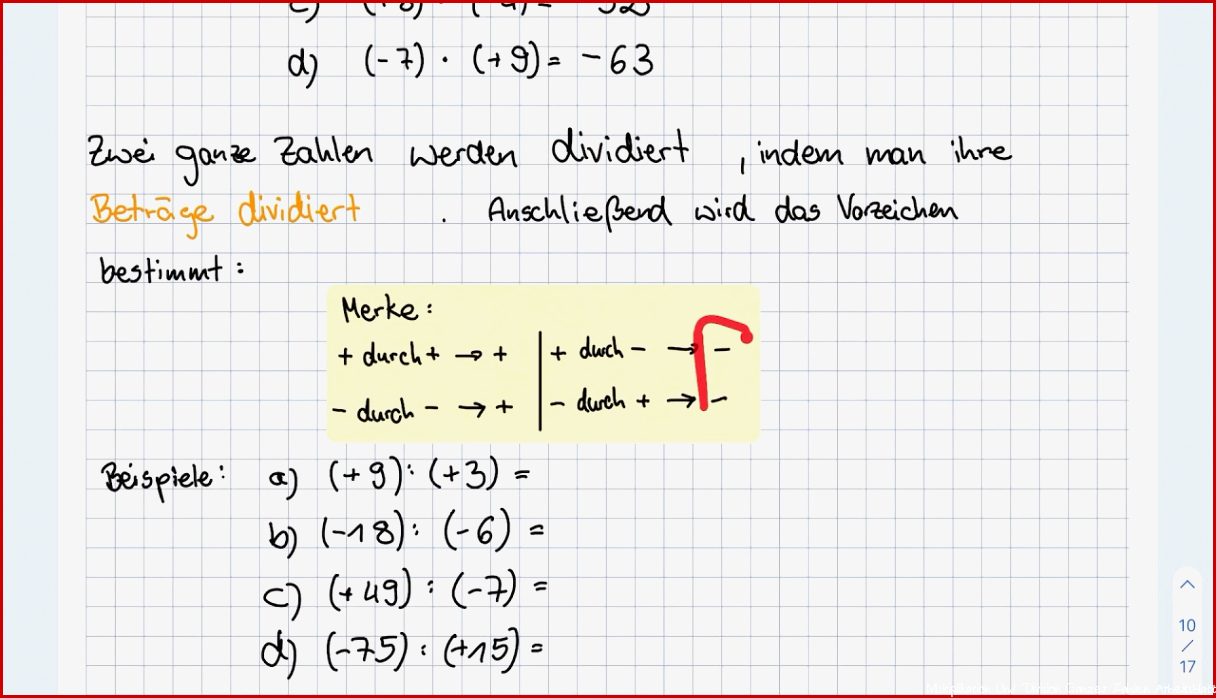 d) (-7) · (+9) = -63
Zwei ganze Zahlen werden dividiert , indem man ihre
Beträge dividiert . Anschließend wird das Vorzeichen
bestimmt :
Merke :
+ durch + → + | + durch - → -
- durch - → + | - durch + → -
Beispiele : a) (+9) : (+3) =
b) (-18) : (-6) =
c) (+49) : (-7) =
d) (-75) : (+15) =
10
/
17